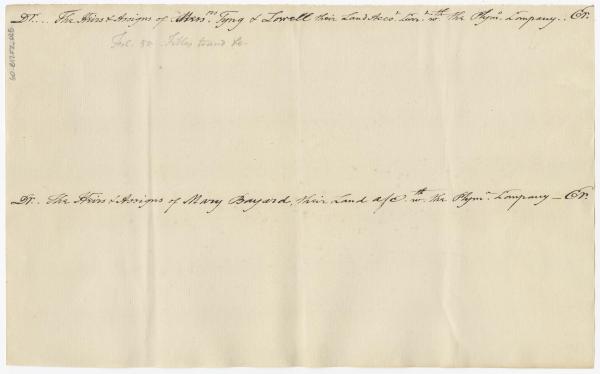 Dr... The Heirs & Assigns of Mess.rs Tyng & Lowell their Land Acco.t Curr.t w.th the Plym.o Company.. Cr.
Fol. 50
Dr.. The Heirs & Assigns of Mary Bayard, their Land a/c w.th the Plym.o Company – Cr.